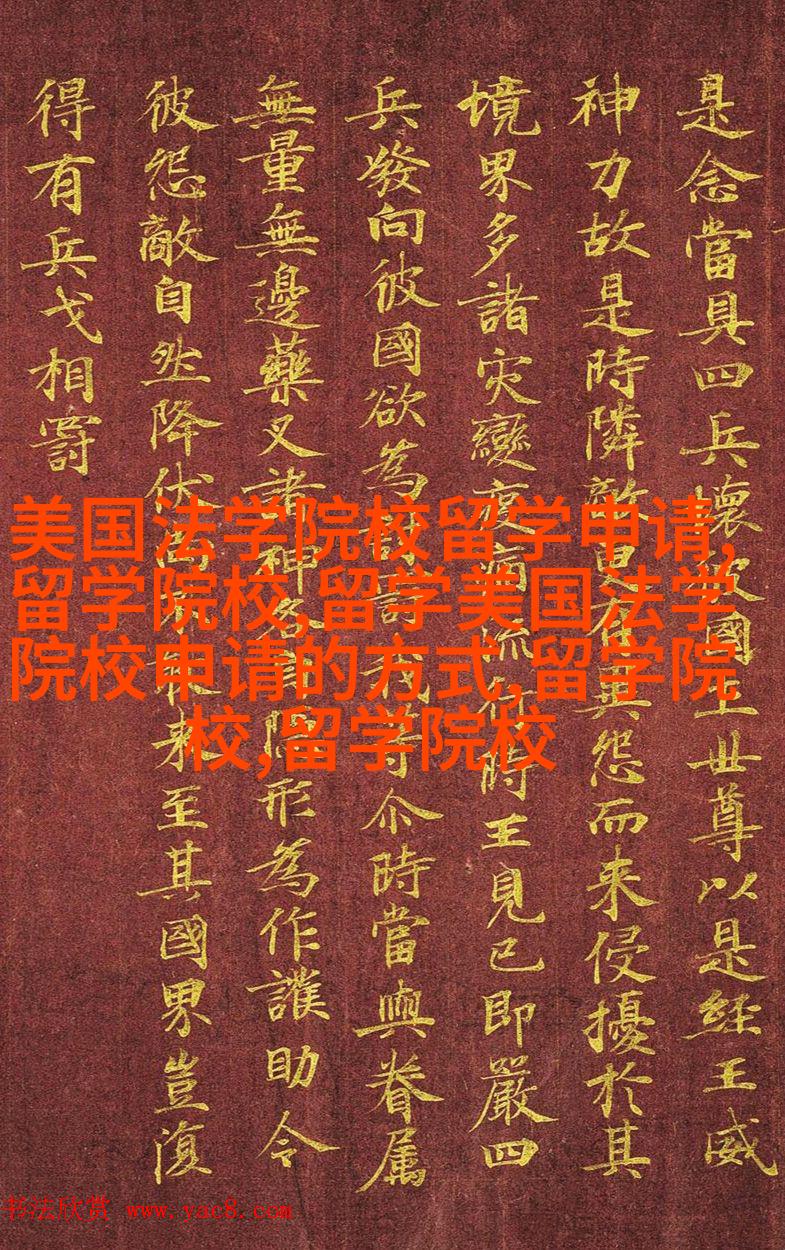 是念當具四兵壞彼國土世尊以是經王威
神力故是時隣敵更有異怨而來侵擾於其
境界多諸灾變疫病流行時王見已即嚴四
兵發向彼國欲為討罰我等尒時當與眷属
無量無邊藥叉諸神各自隱形為作護助令
彼怨敵自然降伏尚不敢來至其國界豈復
得有兵戈相罸
美国法学院校留学申请,
留学院校,留学美国法学
院校申请的方式,留学院
校,留学院校
书法欣赏 www.yac8.com